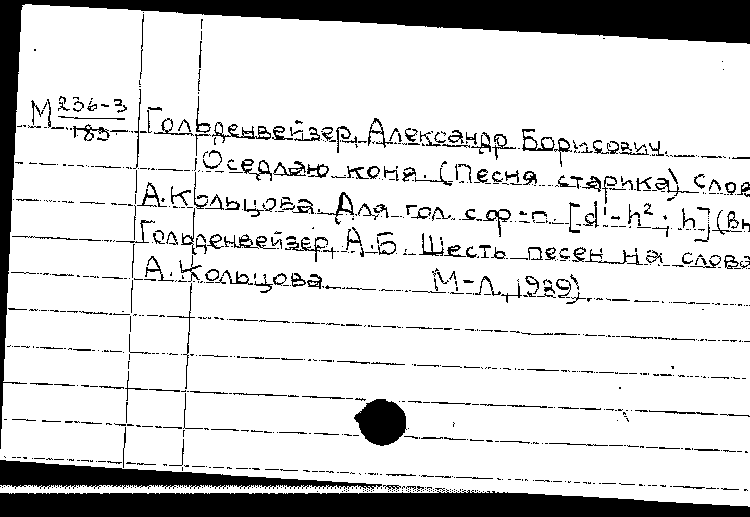 М 236-3
183
Гольденвейзер, Александр Борисович.
Оседлаю коня. (Песня старика) Слов
А. Кольцова. Для гол. с ф-п. [d¹-h²; h] (Вн
Гольденвейзер, А.Б. Шесть песен на слова
А. Кольцова. М-Л., 1939).